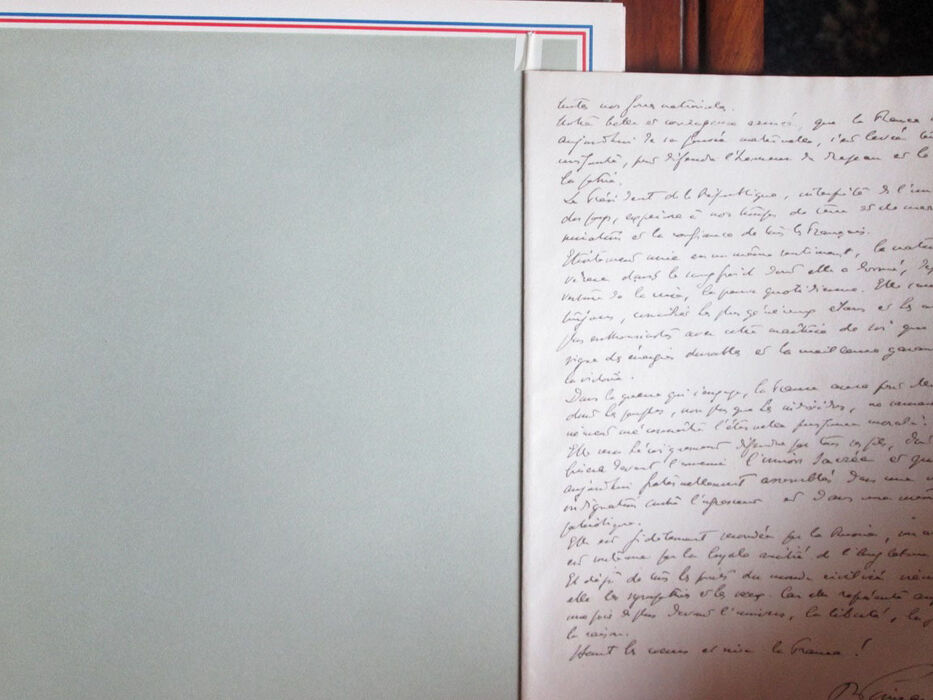 toutes nos forces nationales.
Notre belle et courageuse armée, que la France
aujourd'hui de sa pensée maternelle, s'est levée
frémissante, pour défendre l'honneur du drapeau et le
la patrie.
Le Président de la République, interprète de l'un
du pays, exprime à nos troupes de terre et de mer
miration et la confiance de tous les Français.
Etroitement unie en un même sentiment, la nation
vérera dans le sang froid dont elle a donné, dep
verture de la crise, la preuve quotidienne. Elle
toujours, concilier les plus généreux élans et les
plus enthousiastes avec cette maîtrise de soi qui
signe des énergies durables et la meilleure garan
la victoire.
Dans la guerre qui s'engage, la France aura pour
dont les peuples, non plus que les individus, ne
nément méconnaître l'éternelle puissance morale.
Elle sera héroïquement défendue par tous ses fils, dont
brisera devant l'ennemi l'union sacrée et qui
aujourd'hui fraternellement assemblés dans une
indignation contre l'agresseur et dans une même
patriotique.
Elle est fidèlement secondée par la Russie, son a
est soutenue par la loyale amitié de l'Angleterre
Et déjà de tous les points du monde civilisé vien
elle les sympathies et les vœux. Car elle représente auj
une fois de plus devant l'univers, la liberté, la j
la raison.
Haut les cœurs et vive la France !